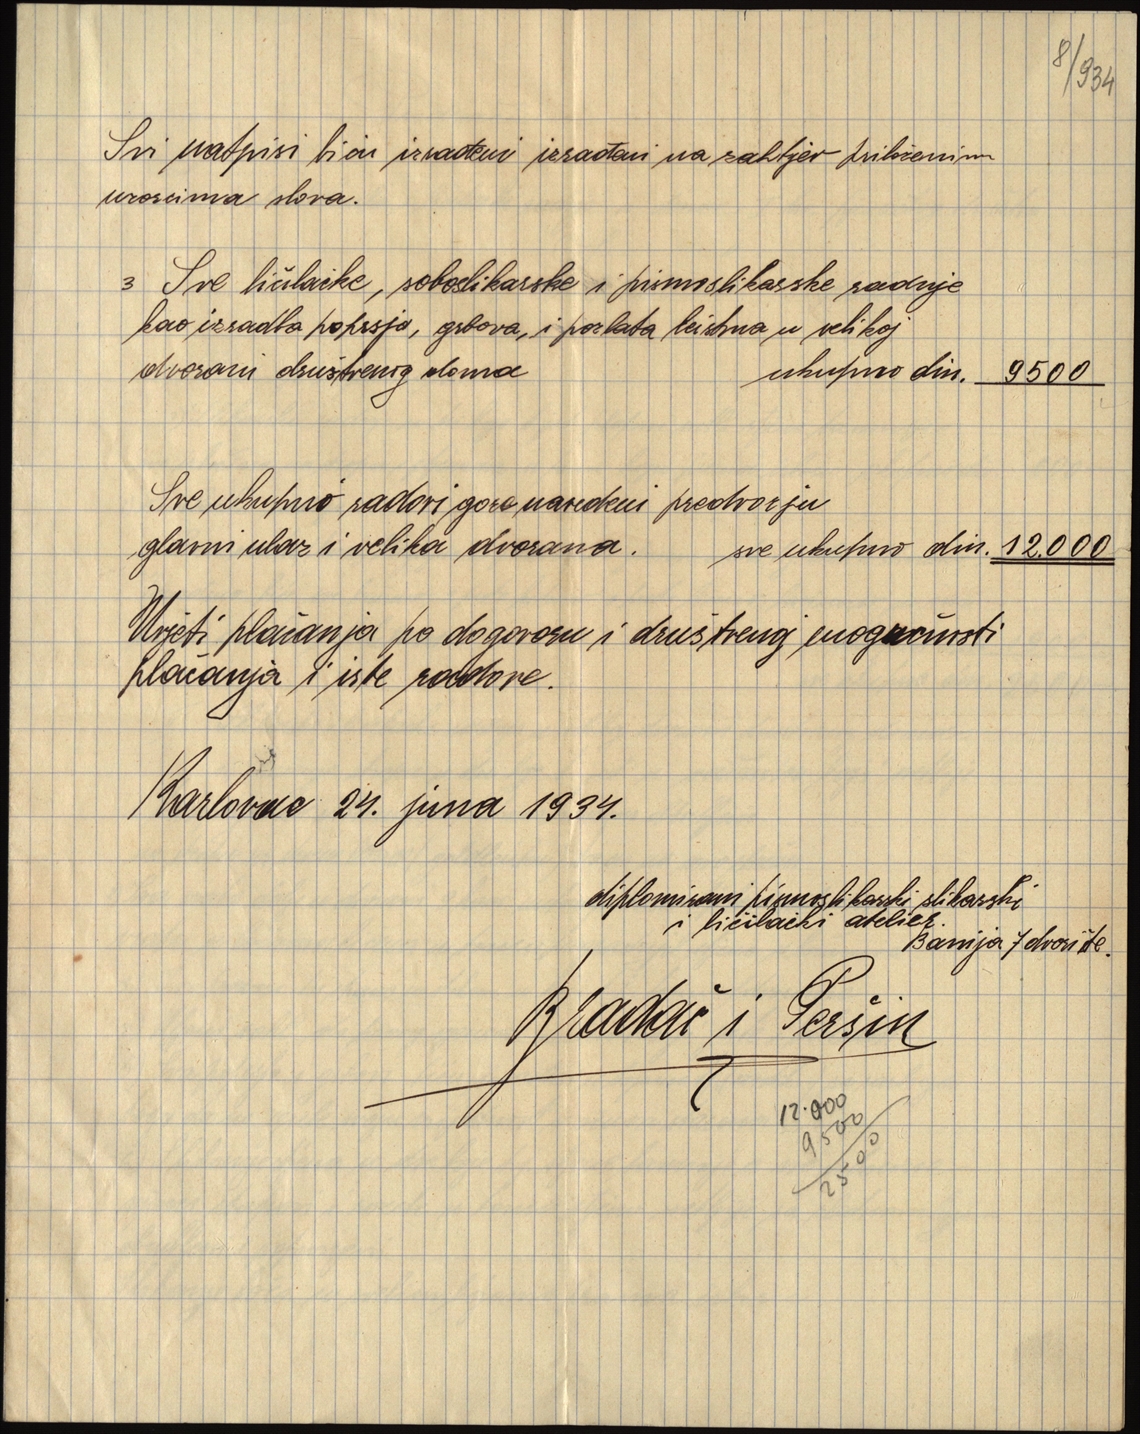 8/934
Svi natpisi biću izrađeni izrađeni na zahtjev priloženim
uzorcima slova.
3 Sve ličilačke, soboslikarske i pismoslikarske radnje
kao izradba poprsja, grbova, i pozlata leistna u velikoj
dvorani društvenog doma ukupno din. 9500
Sve ukupno radovi gore navedeni predvorju
glavni ulaz i velika dvorana. sve ukupno din. 12.000
Uvjeti plačanja po dogovoru i društvenoj mogućnosti
plačanja i iste radove.
Karlovac 24. juna 1934.
diplomirani pismoslikarski slikarski
i ličilački atelier.
Banija 7 dvorište.
Bradač i Peršin
12.000
9500
2500